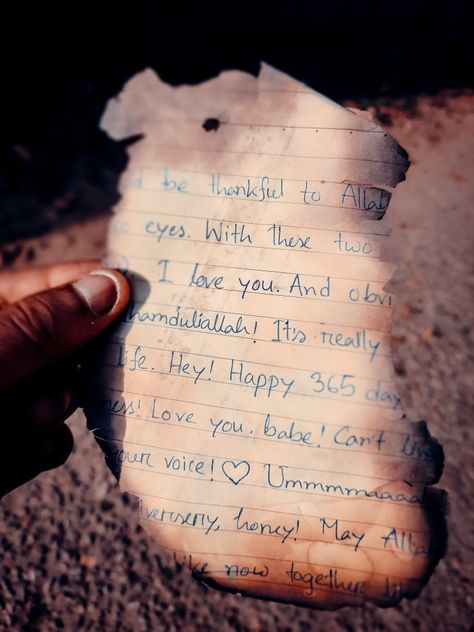 be thankful to Allah
eyes. With these two
I love you. And obvi
hamdulillallah! It's really
life. Hey! Happy 365 day
ness! Love you, babe! Can't live
your voice! ♡ Ummmmaaaa
iversery, honey! May Alla
like now together li